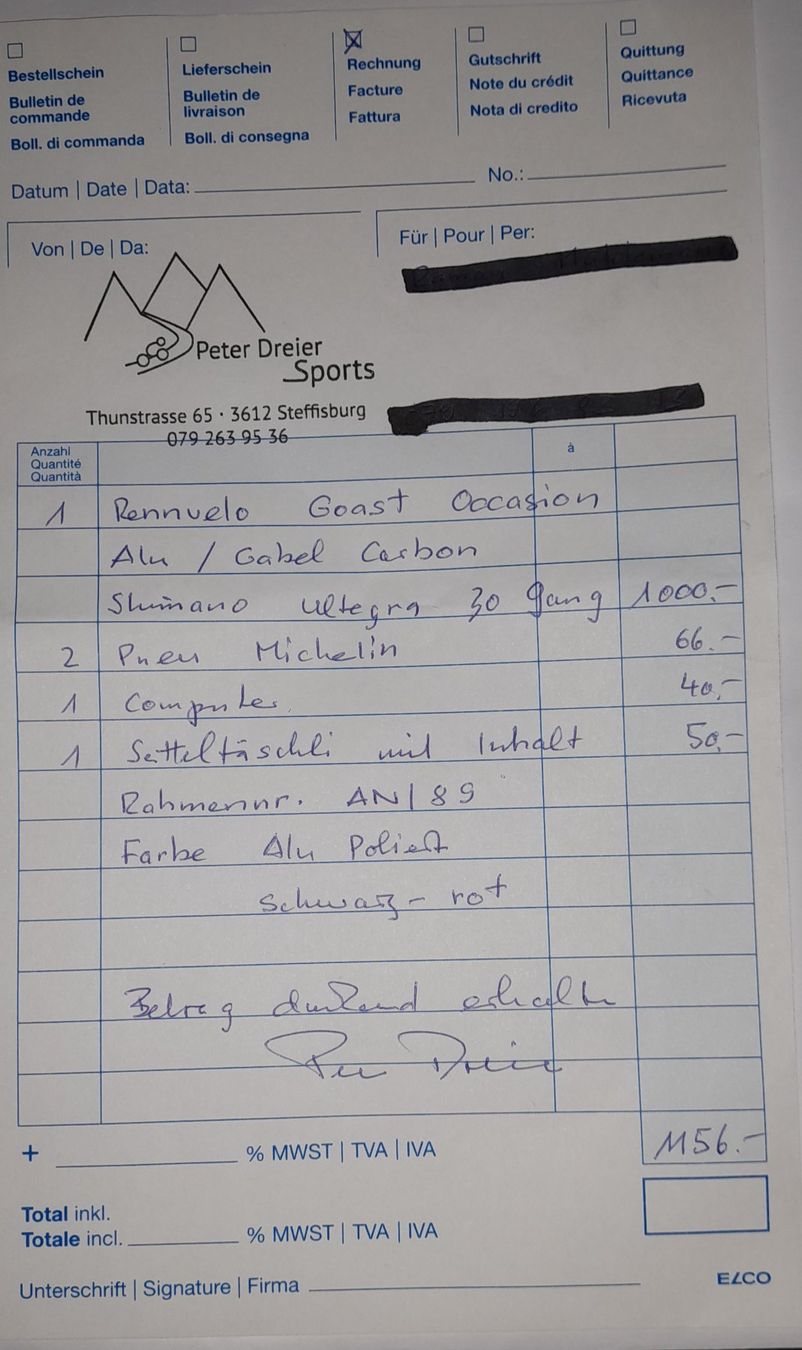 Bestellschein
Bulletin de
commande
Boll. di commanda
Lieferschein
Bulletin de
livraison
Boll. di consegna
Rechnung
Facture
Fattura
Gutschrift
Note du crédit
Nota di credito
Quittung
Quittance
Ricevuta
Datum | Date | Data:
No.:
Von | De | Da:
Für | Pour | Per:
Peter Dreier
Sports
Thunstrasse 65 · 3612 Steffisburg
079 263 95 36
Anzahl
Quantité
Quantità
à
1 Rennvelo Goast Occasion
Alu / Gabel Carbon
Shimano Ultegra 30 gang 1000.-
2 Pneu Michelin 66.-
1 Computer 40.-
1 Satteltäschli mit Inhalt 50.-
Rahmennr. AN/89
Farbe Alu Poliert
Schwarz-rot
Betrag dankend erhalten
Peter Dreier
1156.-
+ % MWST | TVA | IVA
Total inkl.
Totale incl. % MWST | TVA | IVA
Unterschrift | Signature | Firma
ELCO